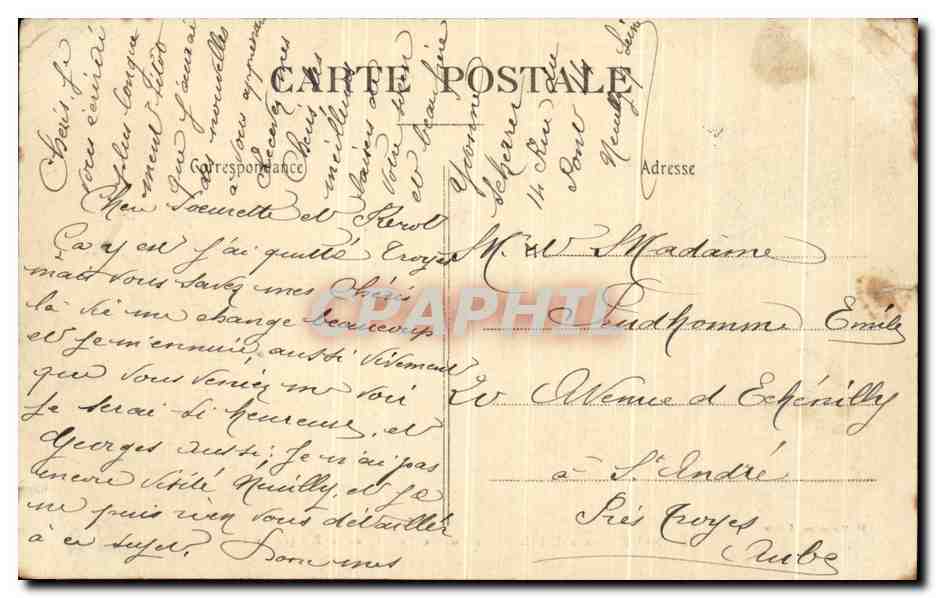 CARTE POSTALE
Correspondance
Adresse
Chère Soeurette et Pierrot
Ça y est j'ai quitté Troyes
mais vous savez mes chéris
la vie me change beaucoup
et je m'ennuie, aussi vivement
que vous veniez me voir
je serai si heureuse, et
Georges aussi; je n'ai pas
encore visité Neuilly, et je
ne puis rien vous détailler
à ce sujet. Donc mes
chéris je
vous écrirai
plus longue
ment sitôt
que j'aurai
des nouvelles
à vous apprendre
Recevez mes
chéris les
meilleurs
baisers de
votre soeur
et belle soeur
Yvonne
Scherrer
14 Rue du
Pont
Neuilly s/ Seine
M. et Madame
Prudhomme Emile
20 Avenue d Echenilly
à St André
Près Troyes
Aube
CPAPHIL